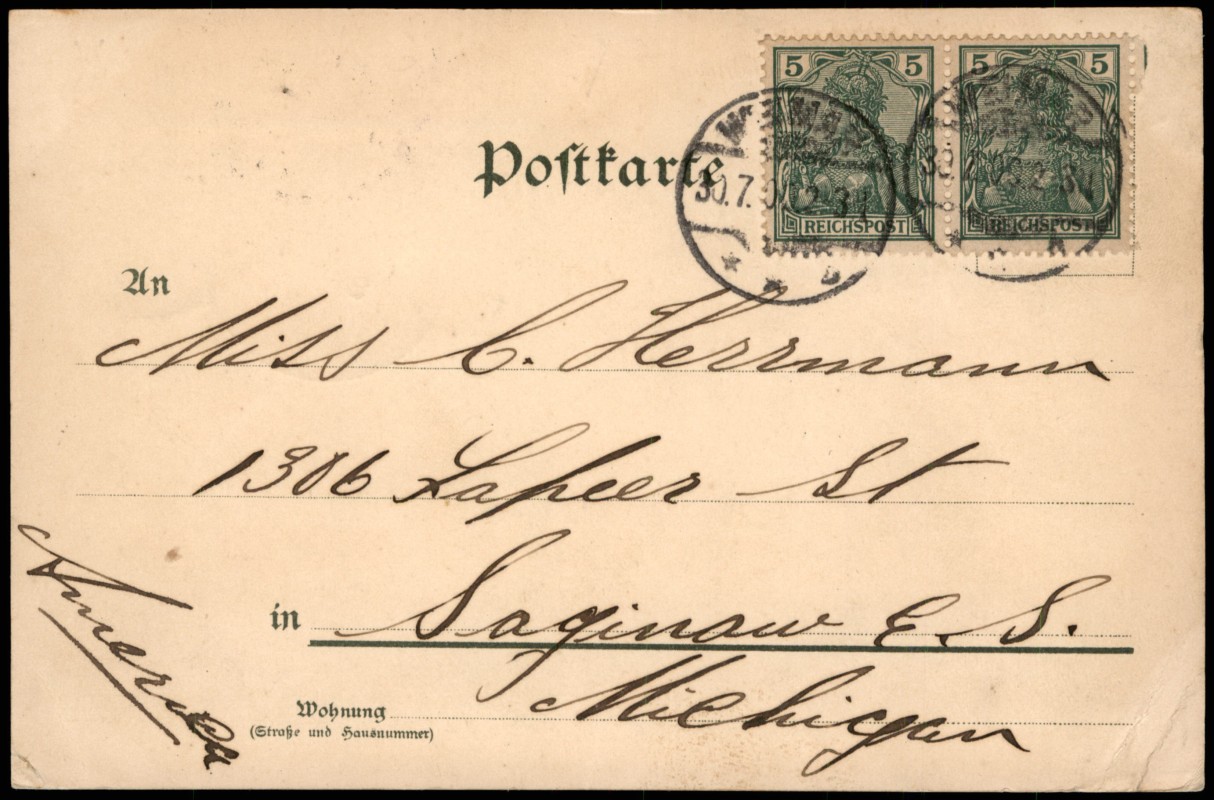 5 5 5 5
REICHSPOST REICHSPOST
Poſtkarte
30.7.0
An
Miss C. Herrmann
1306 Lapeer St
in Saginaw E. S.
Michigan
Wohnung
(Straße und Hausnummer)